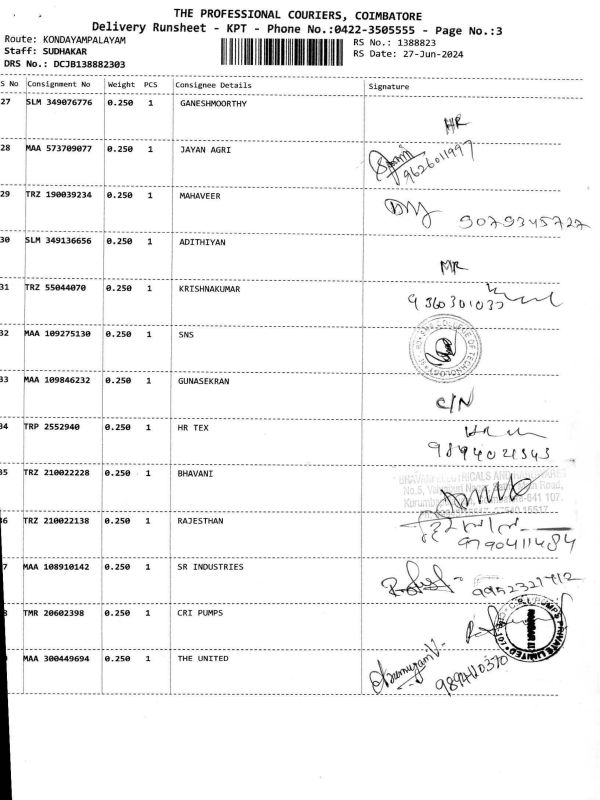 THE PROFESSIONAL COURIERS, COIMBATORE
Delivery Runsheet - KPT - Phone No.:0422-3505555 - Page No.:3
Route: KONDAYAMPALAYAM RS No.: 1388823
Staff: SUDHAKAR RS Date: 27-Jun-2024
DRS No.: DCJB138882303
S No Consignment No Weight PCS Consignee Details Signature
27 SLM 349076776 0.250 1 GANESHMOORTHY
28 MAA 573709077 0.250 1 JAYAN AGRI
9626011997
29 TRZ 190039234 0.250 1 MAHAVEER
9079345727
30 SLM 349136656 0.250 1 ADITHIYAN
31 TRZ 55044070 0.250 1 KRISHNAKUMAR
32 MAA 109275130 0.250 1 SNS
COLLEGE OF TECHNOLOGY
33 MAA 109846232 0.250 1 GUNASEKRAN
C/N
34 TRP 2552940 0.250 1 HR TEX
9894021343
35 TRZ 210022228 0.250 1 BHAVANI
No.5, Road,
641 107.
36 TRZ 210022138 0.250 1 RAJESTHAN
9790411484
7 MAA 108910142 0.250 1 SR INDUSTRIES
9952321712
8 TMR 20602398 0.250 1 CRI PUMPS
C.R.I. PUMPS PRIVATE LIMITED
MAA 300449694 0.250 1 THE UNITED